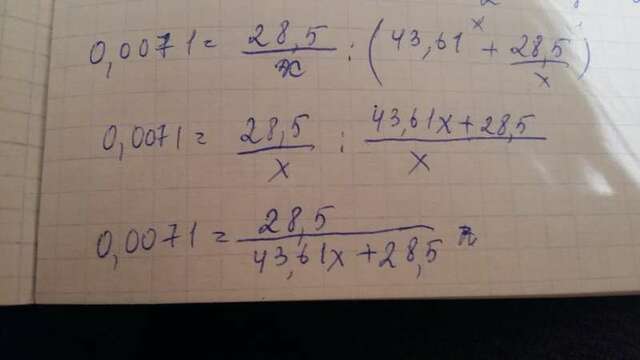 0,0071 = 28,5/x : (43,61^x + 28,5/x)
0,0071 = 28,5/x : (43,61x + 28,5)/x
0,0071 = 28,5/(43,61x + 28,5)